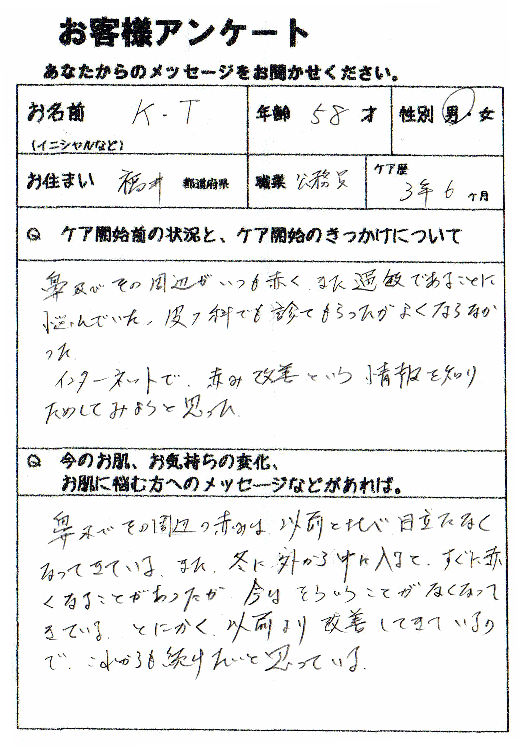 お客様アンケート
あなたからのメッセージをお聞かせください。
お名前 K・T 年齢 58 才 性別 男・女
(イニシャルなど)
お住まい 福井 都道府県 職業 公務員 ケア歴 3年 6 ヶ月
Q ケア開始前の状況と、ケア開始のきっかけについて
鼻及びその周辺がいつも赤く、また過敏であることに
悩んでいた。皮フ科でも診てもらったがよくならなか
った。
インターネットで、赤み改善という情報を知り
ためしてみようと思った。
Q 今のお肌、お気持ちの変化、
お肌に悩む方へのメッセージなどがあれば。
鼻及びその周辺の赤みは、以前と比べ目立たなく
なってきている。また、冬に外から中に入ると、すぐに赤
くなることがあったが、今はそういうことがなくなって
きている。とにかく、以前より改善してきているの
で、これからも続けたいと思っている。